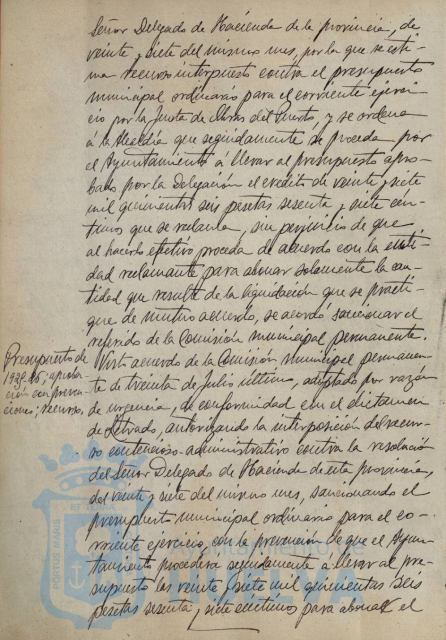 Señor Delegado de Hacienda de la provincia, de
veinte y siete del mismo mes, por la que se esti-
ma recurso interpuesto contra el presupuesto
municipal ordinario para el corriente ejerci-
cio por la Junta de Obras del Puerto, y se ordena
á la Alcaldía que seguidamente se proceda por
el Ayuntamiento á llevar al presupuesto apro-
bado por la Delegación el crédito de veinte y siete
mil quinientas seis pesetas sesenta y siete cén-
timos que se reclama, sin perjuicio de que
al hacerlo efectivo proceda de acuerdo con la enti-
dad reclamante para abonar solamente la can-
tidad que resulte de la liquidación que se practi-
que de mutuo acuerdo, se acordó sancionar el
referido de la Comisión municipal permanente.
Presupuesto de
1925-26; aproba-
ción con preven-
ciones; recurso.
Visto acuerdo de la Comisión municipal permanen-
te de treinta de Julio último, adoptado por razón
de urgencia, de conformidad con el dictamen
de Letrado, autorizando la interposición del recur-
so contencioso-administrativo contra la resolución
del Señor Delegado de Hacienda de esta provincia,
del veinte y siete del mismo mes, sancionando el
presupuesto municipal ordinario para el co-
rriente ejercicio con la prevención de que el Ayun-
tamiento procediera seguidamente á llevar al pre-
supuesto las veinte y siete mil quinientas seis
pesetas sesenta y siete céntimos para abonar el
PORTUS MAGNUS
ET TERRA